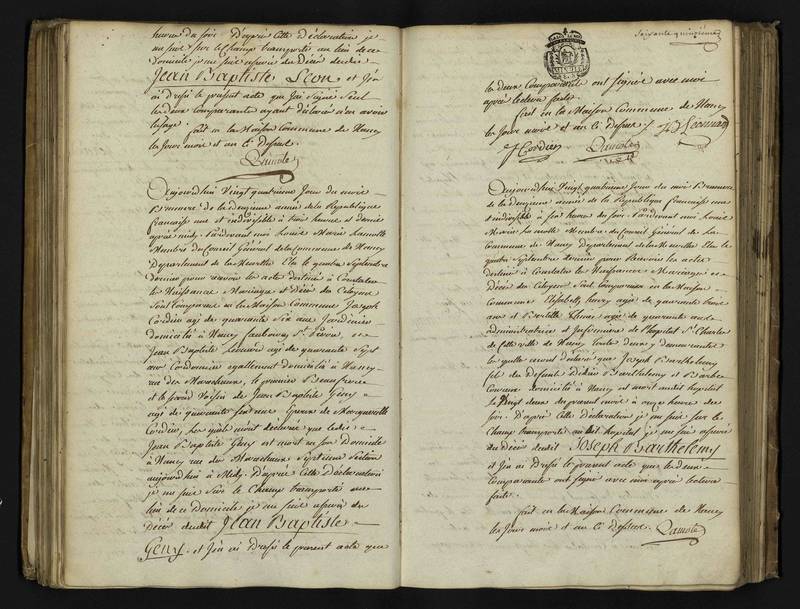 heures du soir. D'après cette déclaration je
me suis sur le champ transporté au lieu de ce
domicile je me suis assuré du Décès dudit
Jean Baptiste Leon, et j'en
ai dressé le présent acte que j'ai signé seul
les deux comparants ayant déclaré n'en avoir
l'usage.
fait en la Maison Commune de Nancy
les jour mois et an ci dessus.
Lamotte
Aujourd'hui Vingt quatrieme jour du mois
Brumaire de la deuxieme année de la Republique
française une et indivisible à trois heures et demie
après midi Pardevant moi Louis Marie Lamotte
Membre du Conseil Général de la Commune de Nancy
Departement de la Meurthe Elu le quatre Septembre
dernier pour recevoir les actes destinés à Constater
la Naissance Mariage et Décès des Citoyens
sont Comparus en la Maison Commune Joseph
Cordier agé de quarante six ans Jardinier
domicilié à Nancy faubourg St
Jean Baptiste Leonard agé de quarante sept
ans Cordonnier egallement domicilié à Nancy
rue des Marechaux, le premier Beaufrere
et le second Voisin de Jean Baptiste Geny
agé de quarante
Cordier, lesquels m'ont déclaré que ledit
Jean Baptiste Geny est mort en son Domicile
à Nancy rue des Marechaux Septieme Section
aujourd'hui à Midy. D'après cette Déclaration
je me suis sur le Champ transporté au
lieu de ce Domicile je me suis assuré du
Décès dudit Jean Baptiste
Geny. et j'en ai Dressé le présent acte que
Soixante quinzième
les deux Comparants ont signés avec moi
après lecture faite.
fait en la Maison Commune de Nancy
les Jours mois et an ci dessus. JB Leonnard
J Cordier Lamotte
Aujourd'hui Vingt quatrieme jour du mois Brumaire
de la deuxieme année de la Republique française une
et indivisible à six heures du soir. Pardevant moi Louis
Marie Lamotte Membre du Conseil Général de la
Commune de Nancy Departement de la Meurthe Elu le
quatre Septembre dernier pour Recevoir les actes
destinés à Constater la Naissance Mariage et
Décès des Citoyens sont Comparues en la Maison
Commune Elisabeth henry agée de quarante trois
ans et agée de quarante ans
administratrice et infirmière de l'hopital St Charles
de cette ville de Nancy toute deux y demeurantes
lesquelles m'ont déclaré que Joseph Barthelemy
fils de defunt Didier Barthelemy et Barbe
domicilié à Nancy est mort audit hopital
le Vingt deux du present mois à onze heures du
soir. D'après cette Déclaration je me suis sur le
Champ transporté audit hopital je me suis assuré
du Décès dudit Joseph Barthelemy
et j'en ai Dressé le présent acte que les deux
comparantes ont signé avec moi après lecture
faite.
fait en la Maison Commune de Nancy
les Jours mois et an ci Dessus. Lamotte